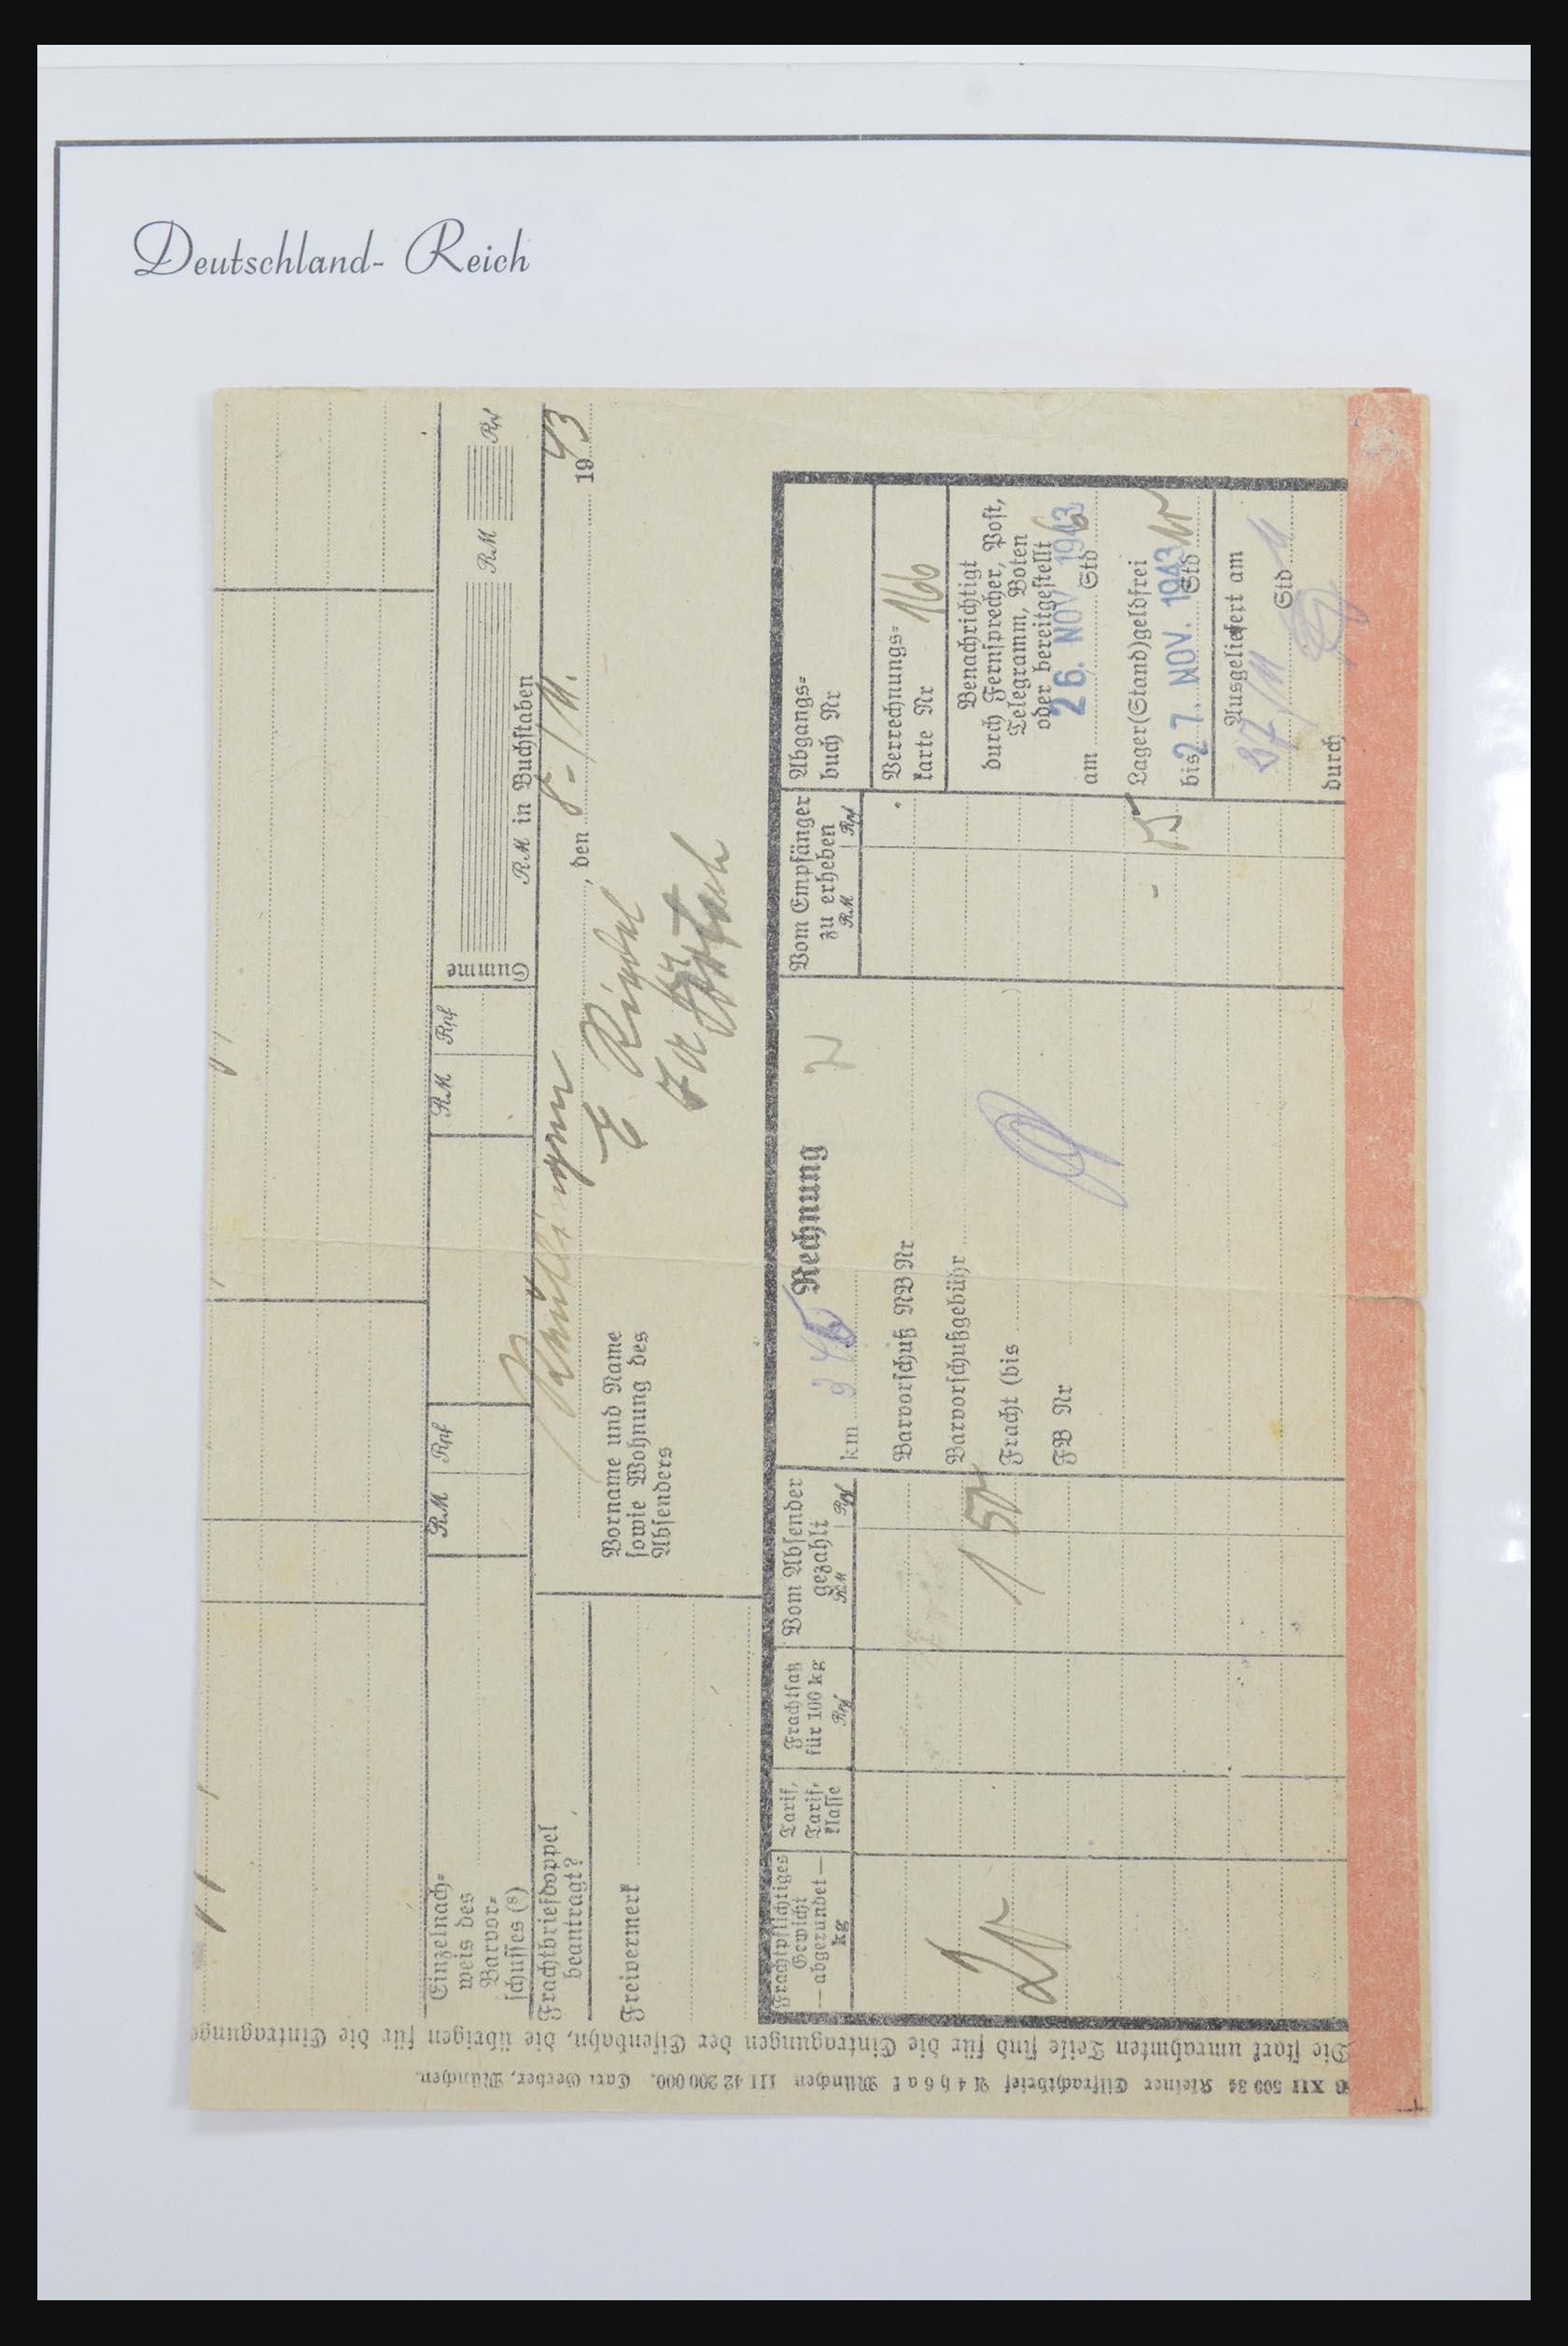 Deutschland- Reich
RM Rpf
RM Rpf
Summe
RM Rpf
RM in Buchstaben
Einzelnach-
weis des
Barvor-
schusses (8)
Frachtbriefdoppel
beantragt?
Freivermerk
, den 8. 11. 1943
Vorname und Name
sowie Wohnung des
Absenders
E
Frachtpflichtiges
Gewicht
— abgerundet —
kg
Tarif,
Tarif-
klasse
Frachtsatz
für 100 kg
Rpf
Vom Absender
gezahlt
RM Rpf
Rechnung
km
Barvorschuß NB Nr
Barvorschußgebühr
Fracht (bis
FB Nr
20
1 50
Vom Empfänger
zu erheben
RM Rpf
Abgangs-
buch Nr
Verrechnungs-
karte Nr 166
Benachrichtigt
durch Fernsprecher, Post,
Telegramm, Boten
oder bereitgestellt
26. NOV 1943
am Std
Lager(Stand)geldfrei
bis 27. NOV. 1943 Std
Ausgeliefert am
27/11 Std 11
durch
Die stark umrahmten Teile sind für die Eintragungen der Eisenbahn, die übrigen für die Eintragunge
XII 500 34 Kleiner Eilfrachtbrief A 4 h 6 a k München III 42 200 000. Carl Gerber, München.